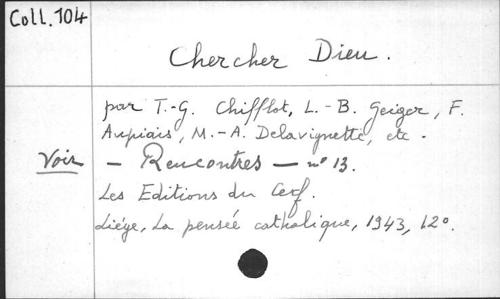 Coll. 104
Chercher Dieu.
par T.-G. Chifflot, L.-B. Geiger, F.
Aupiais, M.-A. Delavignette, etc.
Voir
— Rencontres — n° 13.
Les Editions du Cerf.
Liége, La pensée catholique, 1943, 12°.